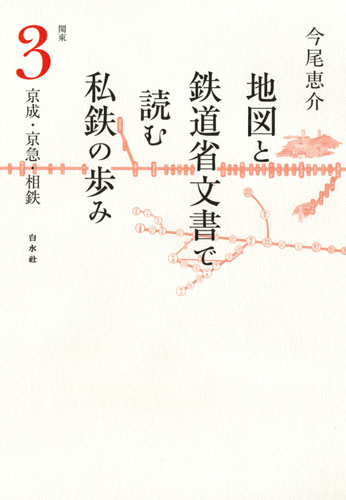 今尾恵介
地図と
鉄道省文書で
読む
私鉄の歩み
関東
3
京成・京急・相鉄
白水社